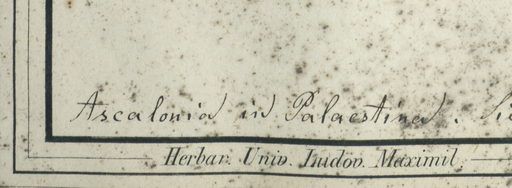 Ascalonia in Palaestina.
Herbar. Univ. Ludov. Maximil